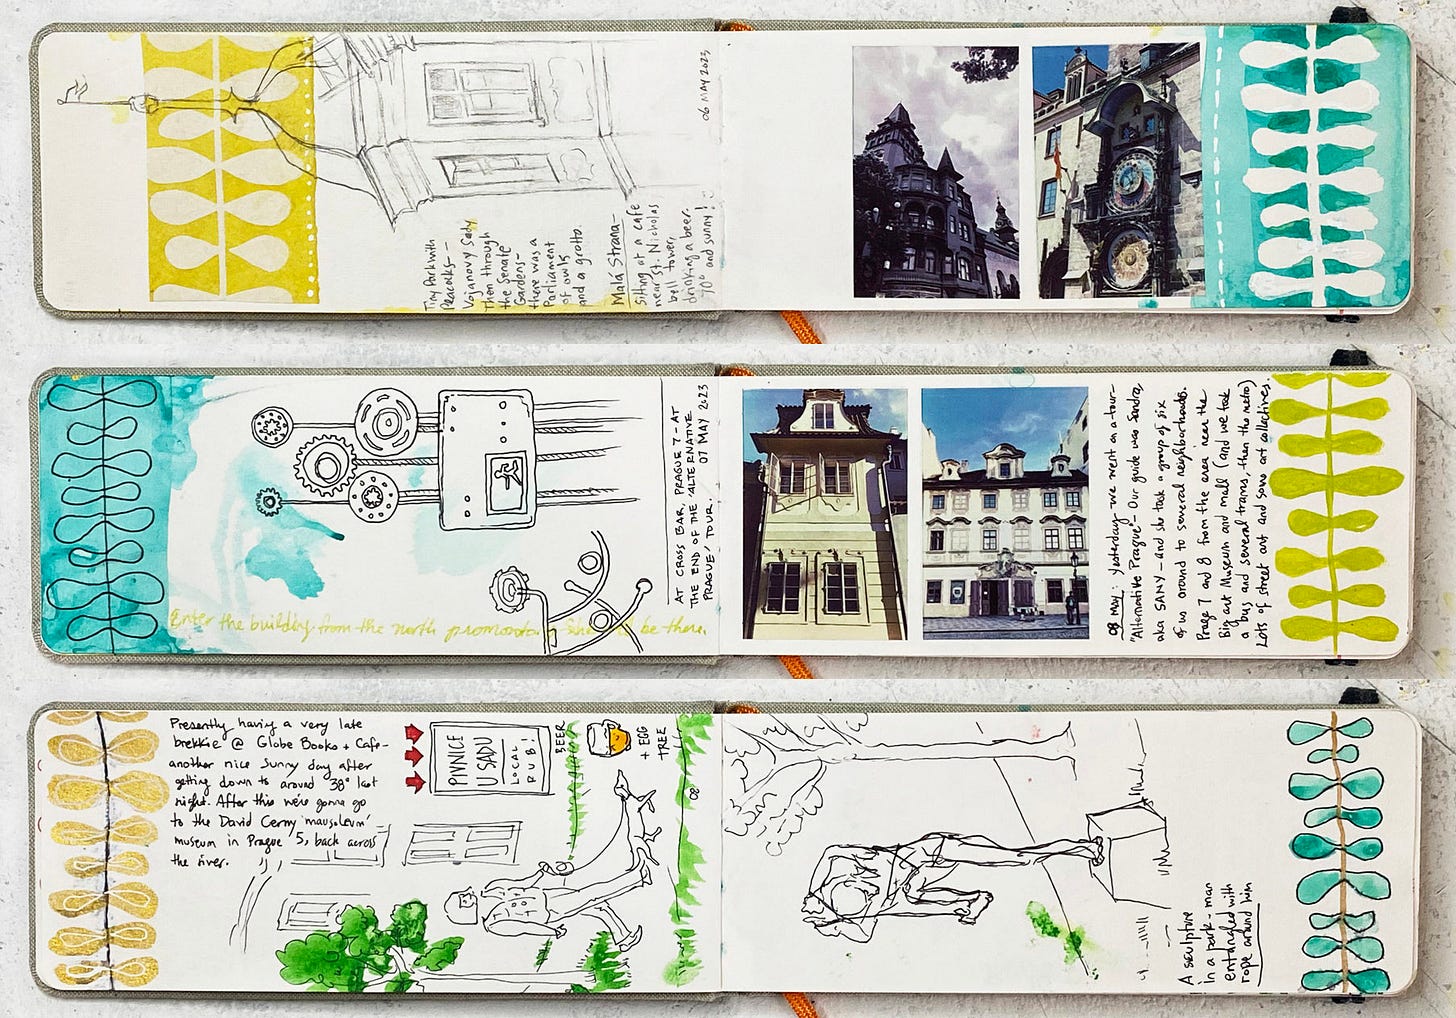 06 MAY 2023
Tiny Park with
Peacocks -
Vojanovy Sady
Then through
the Senate
Gardens -
there was a
Parliament
of owls
and a grotto.
Malá Strana -
sitting at a cafe
near St. Nicholas
bell tower,
drinking a beer.
70° and sunny!
AT CROSS BAR, PRAGUE 7 - AT
THE END OF THE 'ALTERNATIVE
PRAGUE' TOUR, 07 MAY 2023
Enter the building from the north promontory be there.
08 MAY. Yesterday we went on a tour -
"Alternative Prague" - Our guide was Sandra,
aka SANY - and she took a group of six
of us around to several neighborhoods.
Prage 7 and 8 from the area near the
Big art Museum and mall (and we took
a bus and several trams, then the metro)
Lots of street art and some art collectives.
Presently having a very late
brekkie @ Globe Books + Cafe -
another nice sunny day after
getting down to around 38° last
night. After this we're gonna go
to the David Cerny 'mausoleum'
museum in Prague 5, back across
the river.
PIVNICE
U SADU
LOCAL
PUB!
BEER
+ EGG
TREE
08
A sculpture
in a park - man
entangled with
rope around him